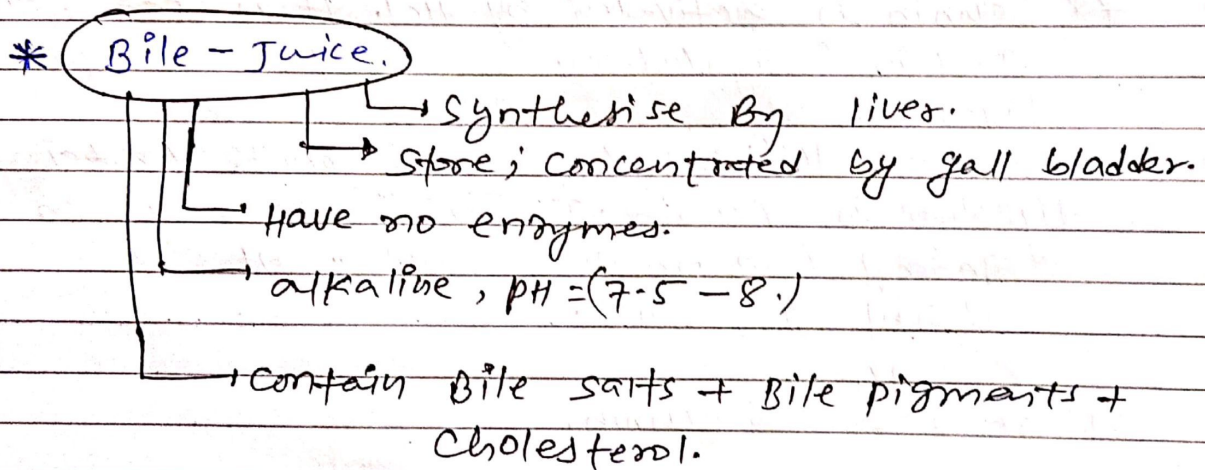 * Bile - Juice.
Synthesise By liver.
Store; Concentrated by gall bladder.
Have no enzymes.
alkaline, pH = (7.5 – 8.)
Contain Bile salts + Bile pigments +
Cholesterol.